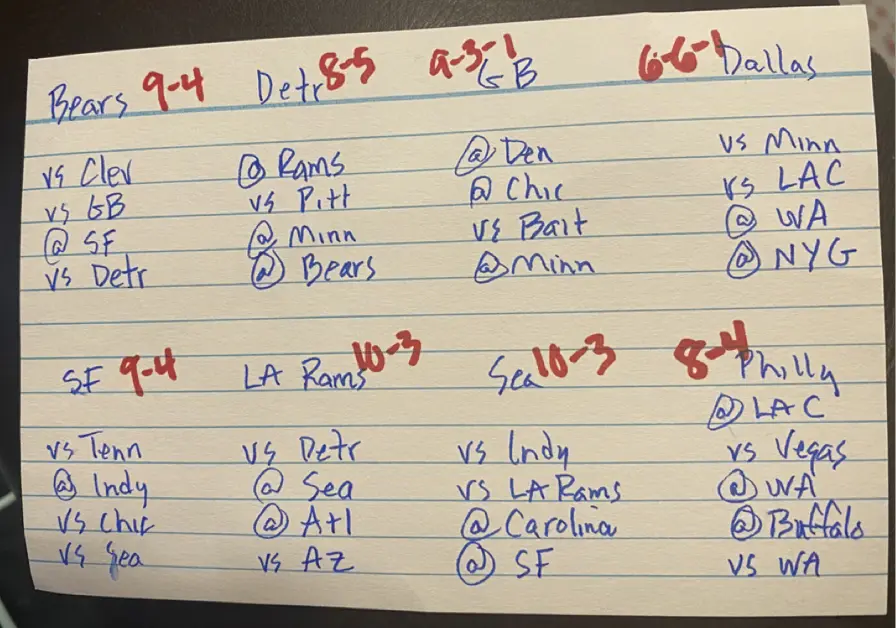 Bears 9-4 Detr 8-5 9-3-1 GB 6-6-1 Dallas
vs Clev @ Rams @ Den vs Minn
vs GB vs Pitt @ Chic vs LAC
@ SF @ Minn vs Balt @ WA
vs Detr @ Bears @ Minn @ NYG
SF 9-4 LA Rams 10-3 Sea 10-3 8-4 Philly
@ LAC
vs Tenn vs Detr vs Indy vs Vegas
@ Indy @ Sea vs LA Rams @ WA
vs Chic @ Atl @ Carolina @ Buffalo
vs Sea vs AZ @ SF vs WA